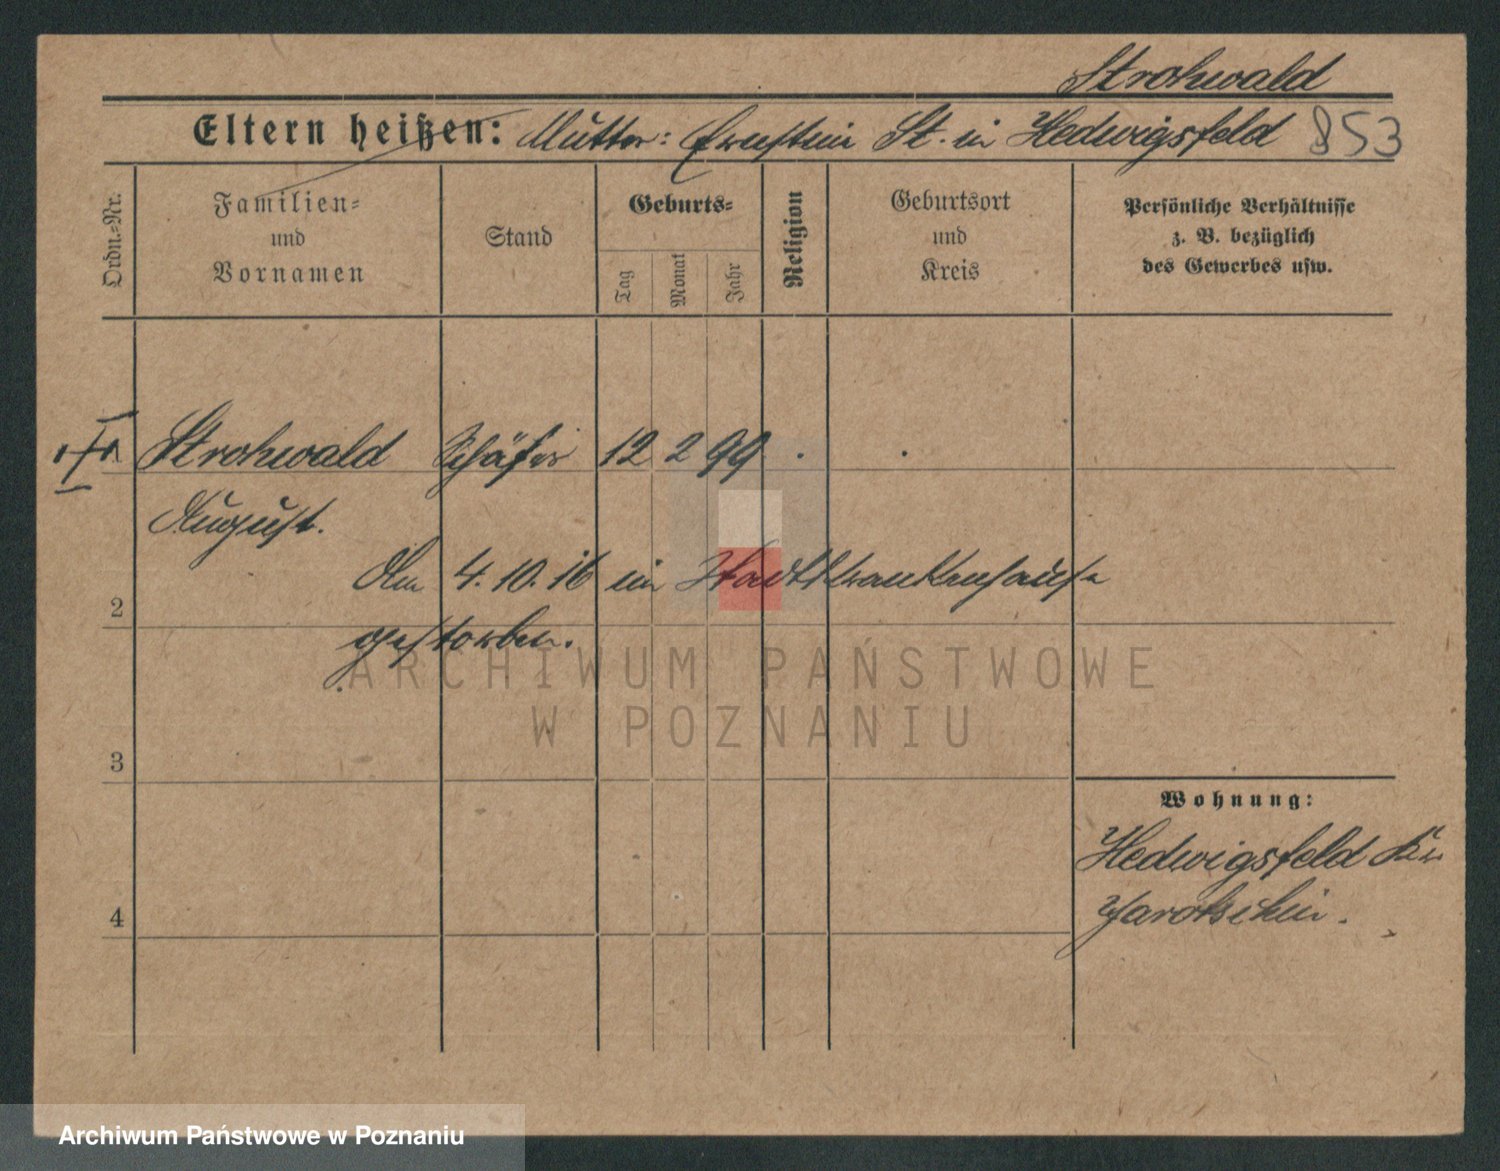 Strohwald
Eltern heißen: Mutter: Ernstine St. in Hedwigsfeld 853
Ordn.-Nr.
Familien-
und
Vornamen
Stand
Geburts-
Tag
Monat
Jahr
Religion
Geburtsort
und
Kreis
Persönliche Verhältnisse
z. B. bezüglich
des Gewerbes usw.
Strohwald Schäfer 12 2 99
August.
Am 4.10.16 im Stadtkrankenhause
2
gestorben.
ARCHIWUM PAŃSTWOWE
W POZNANIU
3
Wohnung:
Hedwigsfeld
4
Jarotschin.
Archiwum Państwowe w Poznaniu